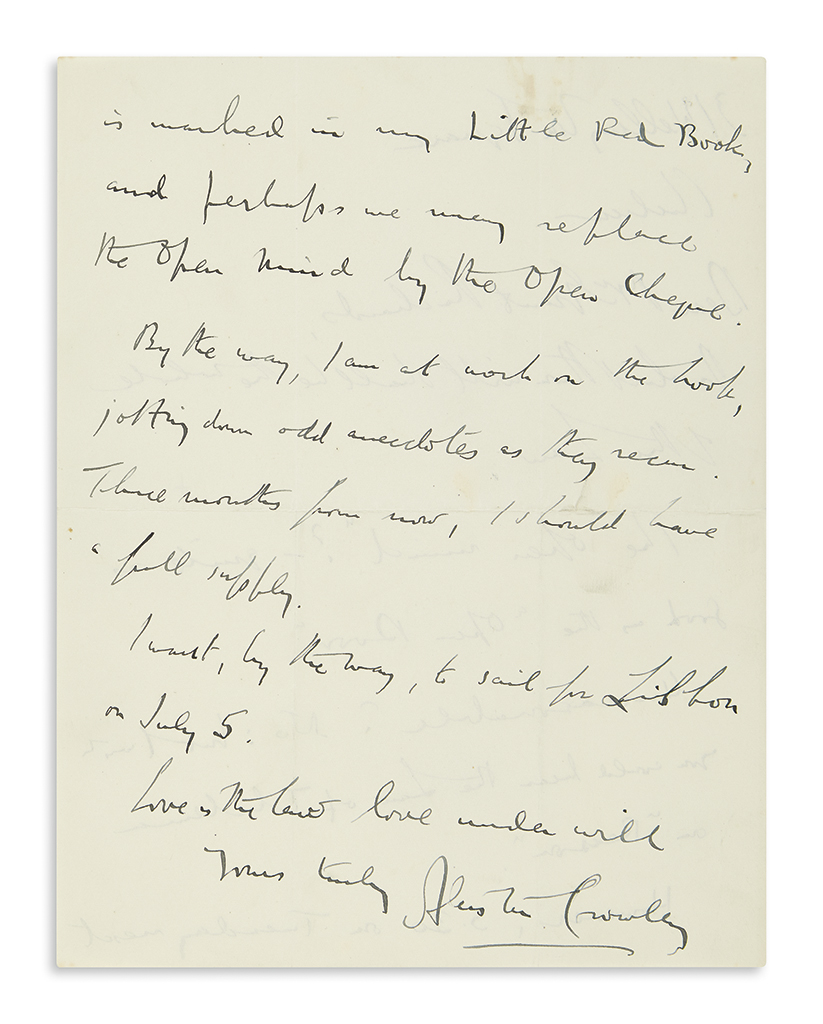 is marked in my Little Red Book,
and perhaps we may replace
the Open Mind by the Open Cheque.
By the way, I am at work on the book,
jotting down odd anecdotes as they recur.
Three months from now, I should have
a full supply.
I want, by the way, to sail for Lisbon
on July 5.
Love is the law love under will
Yours truly Aleister Crowley